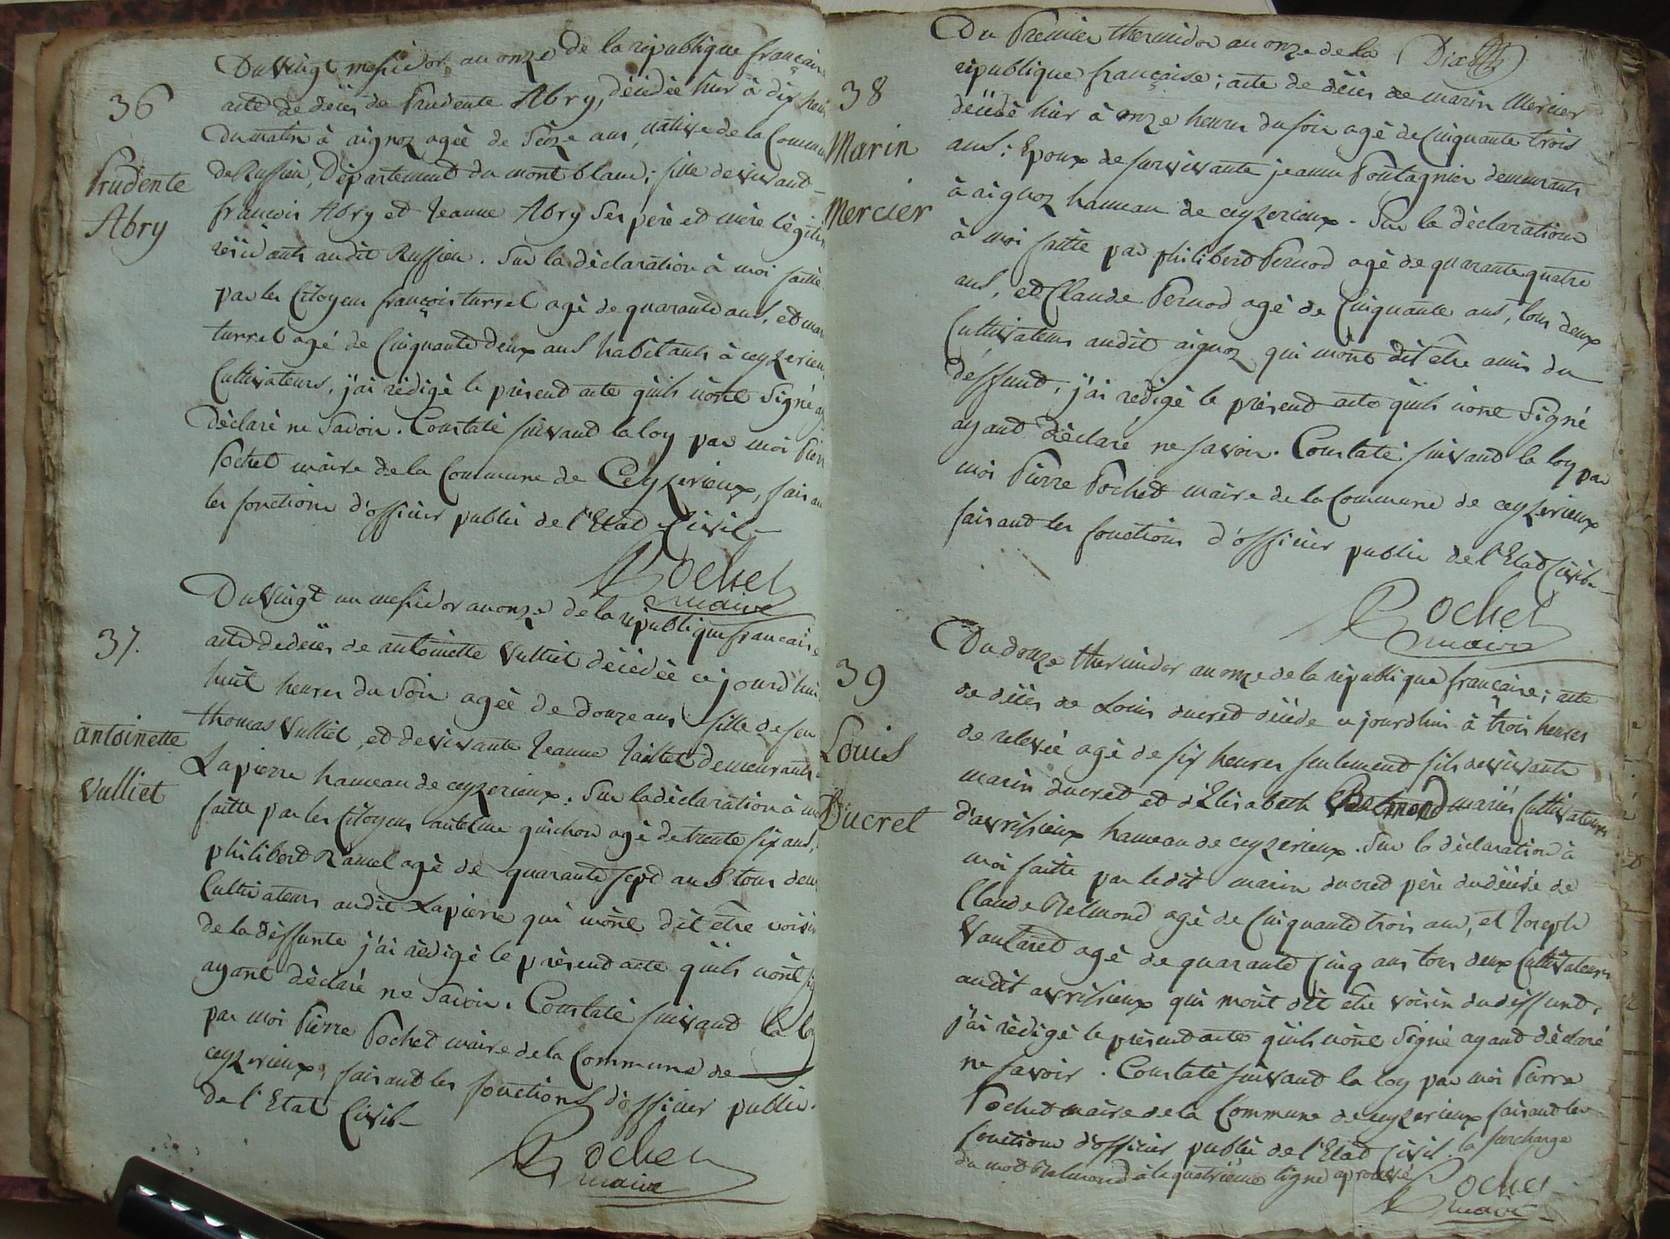 36
Prudente
Abry
Du vingt messidor an onze de la république francaise
acte de décès de Prudente Abry, décédée hier à dix heures
du matin à aignoz agée de seize ans, native de la Commune
de Ruffieu, Département du mont blanc; fille de vivant
francois Abry et Jeanne Abry ses père et mère légitimes
résidants audit Ruffieu. Sur la déclaration à moi faitte
par les Citoyens françois turrel agé de quarante ans, et
turrel agé de Cinquante deux ans habitants à ceyzerieux
Cultivateurs, j'ai rédigé le présent acte qu'ils n'ont Signé
déclaré ne Savoir. Constaté suivant la loy par moi Pierre
Pochet maire de la Commune de Ceyzerieux, faisant
les fonctions d'officier public de l'Etat Civil
Pochet
maire
37.
antoinette
Vulliet
Du Vingt un messidor an onze de la république francaise
acte de décès de antoinette Vulliet décédée ce jourd'hui
huit heures du Soir agée de douze ans fille de feu
thomas Vulliet, et de vivante Jeanne Jaillet demeurants
Lapierre hameau de ceyzerieux. Sur la déclaration à moi
faitte par les Citoyens antelme guichon agé de trente six ans,
philibert Ramel agé de quarante sept ans tous deux
Cultivateurs audit Lapierre qui m'ont dit etre voisins
de la deffunte j'ai rédigé le présent acte qu'ils n'ont
ayant déclaré ne Savoir. Constaté suivant la loy
par moi Pierre Pochet maire de la Commune de
ceyzerieux, faisant les fonctions d'officier public
de l'Etat Civil
Pochet
maire
38
Marin
Mercier
Du Premier thermidor an onze de la
république française; acte de décès de marin Mercier
décédé hier à onze heures du soir agé de Cinquante trois
ans; Epoux de survivante jeanne Pontagnier demeurants
à aignoz hameau de ceyzerieux. Sur la déclaration
à moi faitte par philibert Pernod agé de quarante quatre
ans, et Claude Pernod agé de Cinquante ans, tous deux
Cultivateurs audit aignoz qui m'ont dit etre amis du
deffunt, j'ai redigé le présent acte qu'ils n'ont Signé
ayant déclaré ne savoir. Constaté suivant la loy par
moi Pierre Pochet maire de la Commune de ceyzerieux
faisant les fonctions d'officier public de l'Etat Civil
Pochet
maire
39
Louis
Ducret
Du douze thermidor an onze de la république française; acte
de décès de Louis ducret décédé ce jourd'hui à trois heures
de relevée agé de six heures seulement fils de vivante
marin ducret et d'Elisabeth Belmond mariés Cultivateurs
d'avrissieux hameau de ceyzerieux. Sur la déclaration à
moi faitte par ledit marin ducret père du décédé de
Claude Belmond agé de Cinquante trois ans, et Joseph
Vautaret agé de quarante Cinq ans tous deux Cultivateurs
audit avrissieux qui m'ont dit etre voisin du deffunt,
j'ai rédigé le présent acte qu'ils n'ont Signé ayant déclaré
ne savoir. Constaté suivant la loy par moi Pierre
Pochet maire de la Commune de ceyzerieux faisant les
fonctions d'officier public de l'Etat Civil. la surcharge
du mot Belmond à la quatrième ligne aprouvé
Pochet
maire